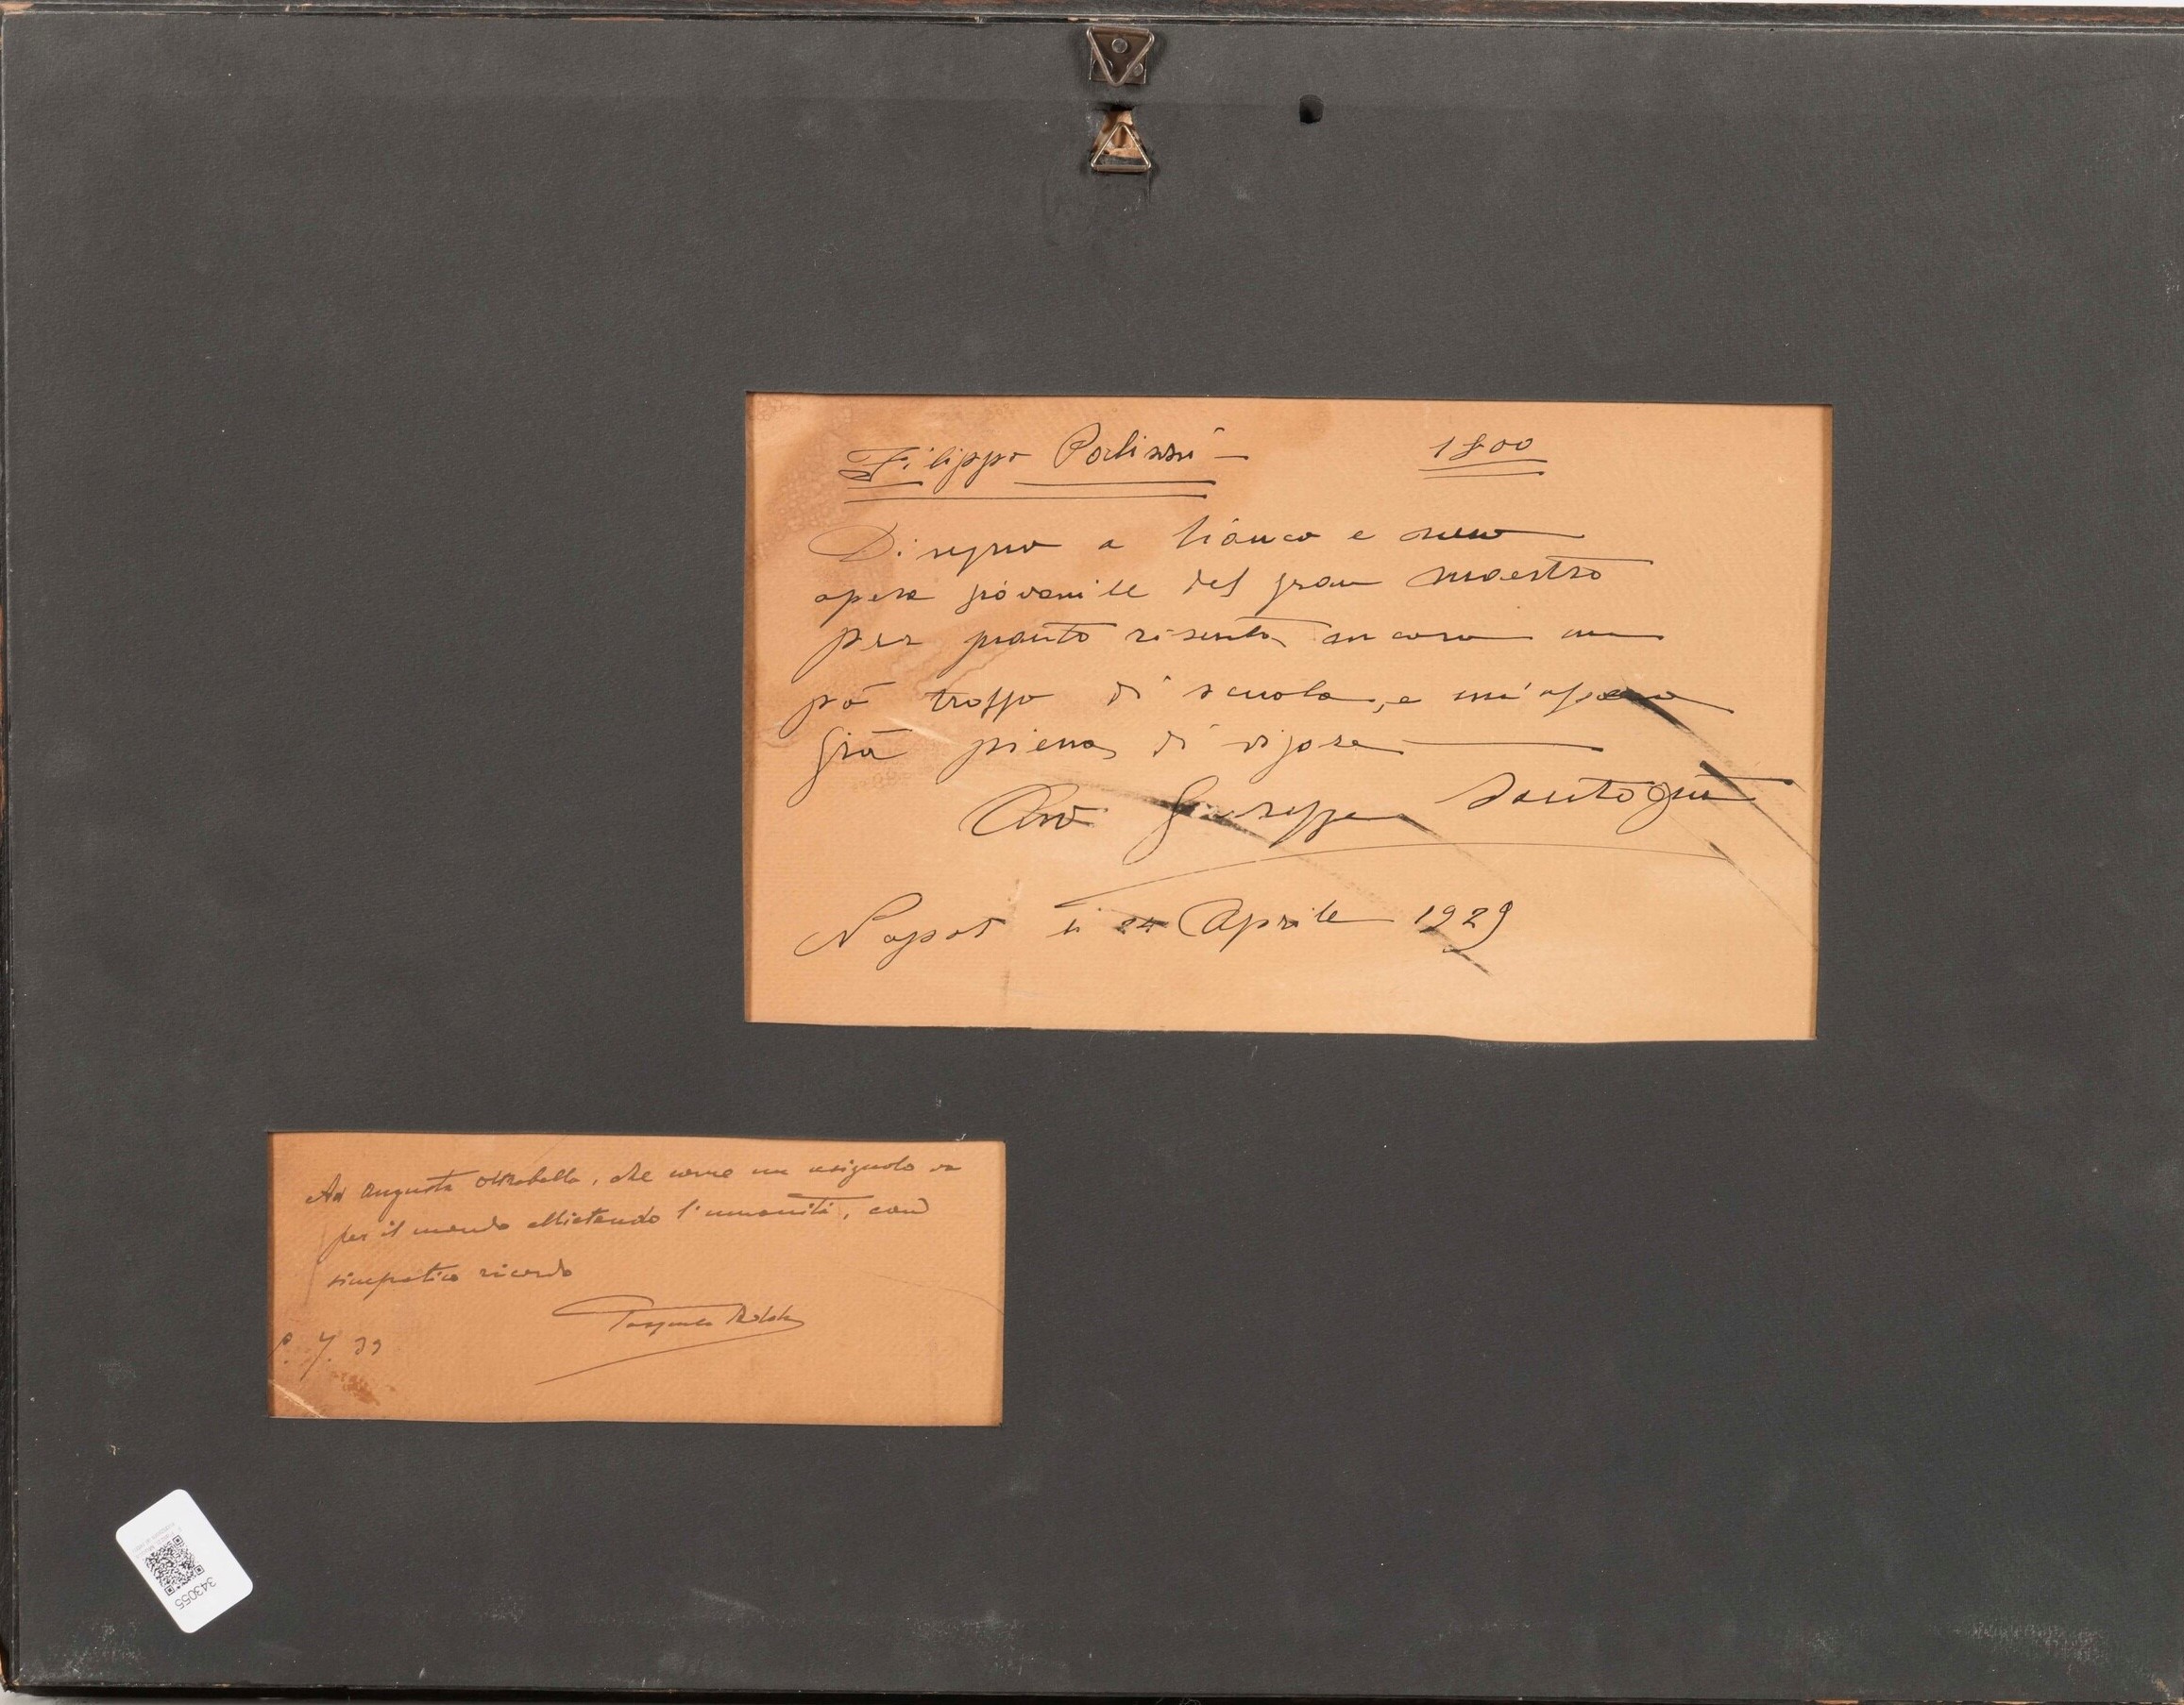 Filippo Palizzi — 1800
Disegno a bianco e nero
opera giovanile del gran maestro
per quanto risenta ancora un
pò troppo di scuola, e un'opera
già piena di vigore
Giuseppe
Napoli li 24 Aprile 1929
Ad Augusto, che come un usignolo va
per il mondo allietando l'umanità, con
simpatico ricordo
Pasquale
343055